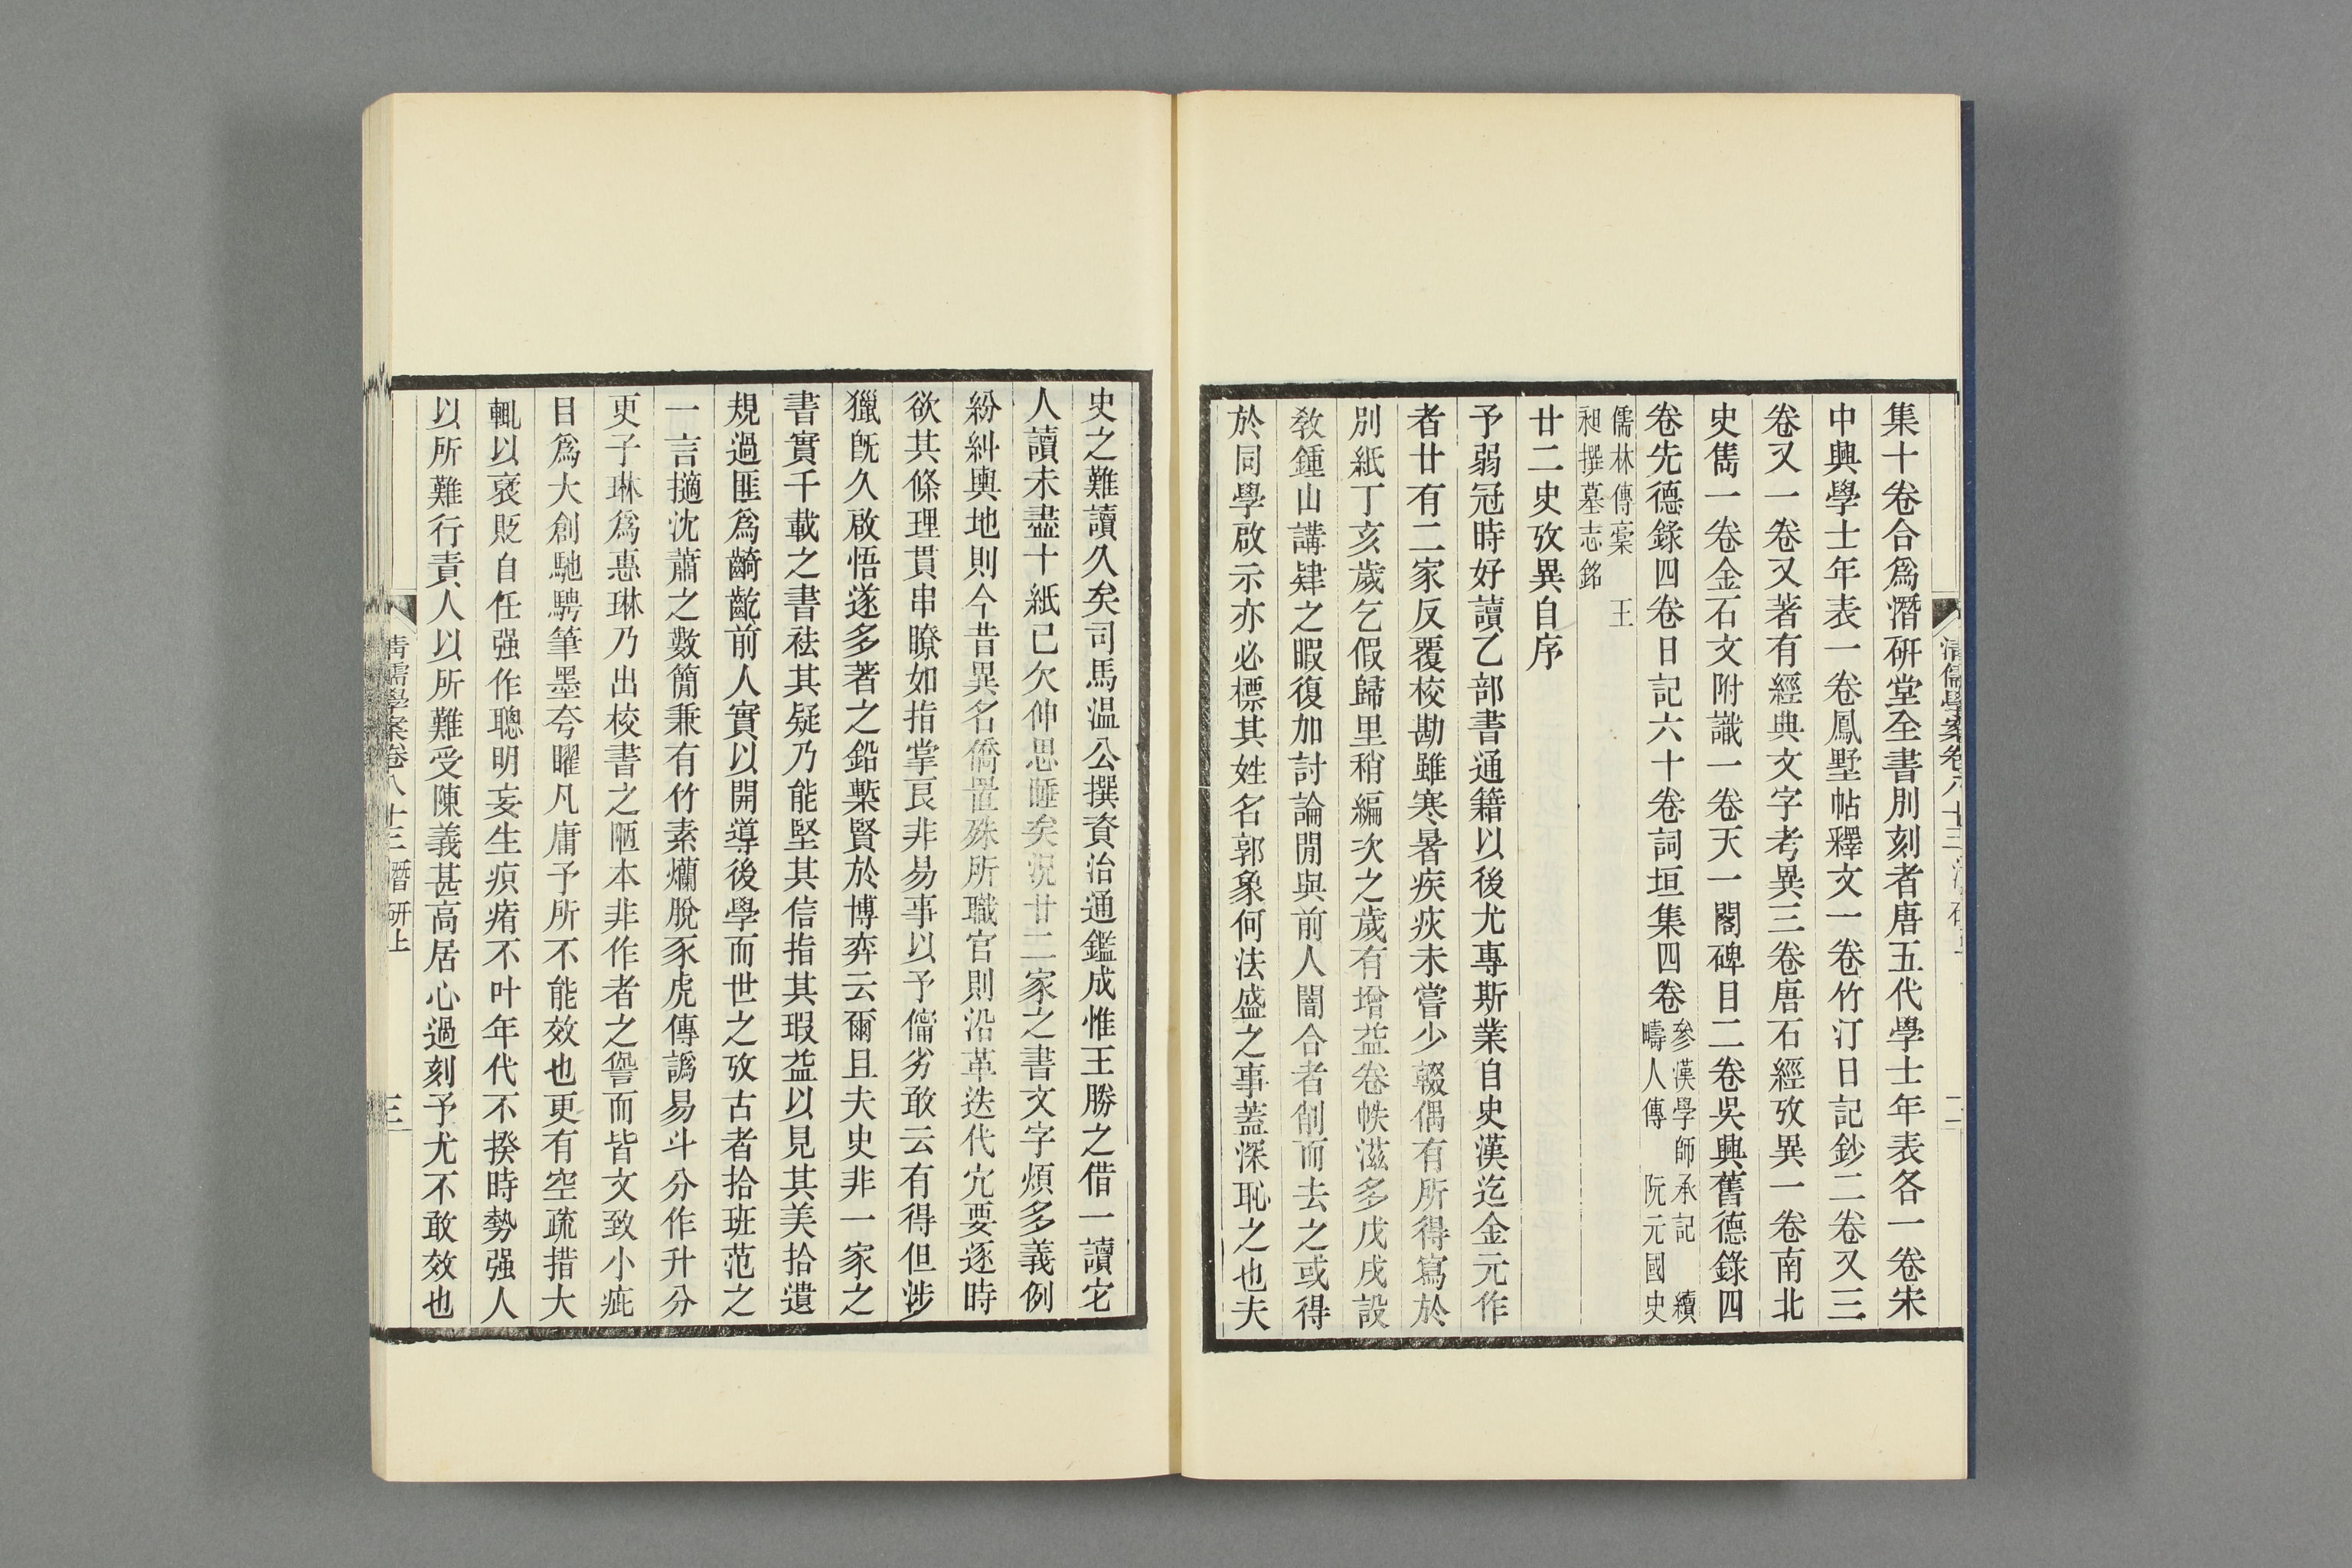 集十卷合爲潛硏堂全書別刻者唐五代學士年表各一卷宋
中興學士年表一卷鳳墅帖釋文一卷竹汀日記鈔二卷又三
卷又一卷又著有經典文字考異三卷唐石經攷異一卷南北
史雋一卷金石文附識一卷天一閣碑目二卷吳興舊德錄四
卷先德錄四卷日記六十卷詞垣集四卷
參漢學師承記 續
疇人傳 阮元國史
儒林傳稾 王
昶撰墓志銘
廿二史攷異自序
予弱冠時好讀乙部書通籍以後尤專斯業自史漢迄金元作
者廿有二家反覆校勘雖寒暑疾疢未嘗少輟偶有所得寫於
別紙丁亥歲乞假歸里稍編次之歲有增益卷帙滋多戊戌設
敎鍾山講肄之暇復加討論閒與前人闇合者削而去之或得
於同學啟示亦必標其姓名郭象何法盛之事蓋深恥之也夫
史之難讀久矣司馬温公撰資治通鑑成惟王勝之借一讀宅
人讀未盡十紙已欠伸思睡矣況廿二家之書文字煩多義例
紛糾輿地則今昔異名僑置殊所職官則沿革迭代宂要逐時
欲其條理貫串瞭如指掌良非易事以予儜劣敢云有得但涉
獵旣久啟悟遂多著之鉛槧賢於博弈云爾且夫史非一家之
書實千載之書祛其疑乃能堅其信指其瑕益以見其美拾遺
規過匪爲齮齕前人實以開導後學而世之攷古者拾班范之
一言擿沈蕭之數簡兼有竹素爛脫豕虎傳譌易斗分作升分
更子琳爲惠琳乃出校書之陋本非作者之諐而皆文致小疵
目爲大創馳騁筆墨夸曜凡庸予所不能效也更有空疏措大
輒以襃貶自任强作聰明妄生㾗痏不叶年代不揆時勢强人
以所難行責人以所難受陳義甚高居心過刻予尤不敢效也
清儒學案卷八十三 潛研上
三